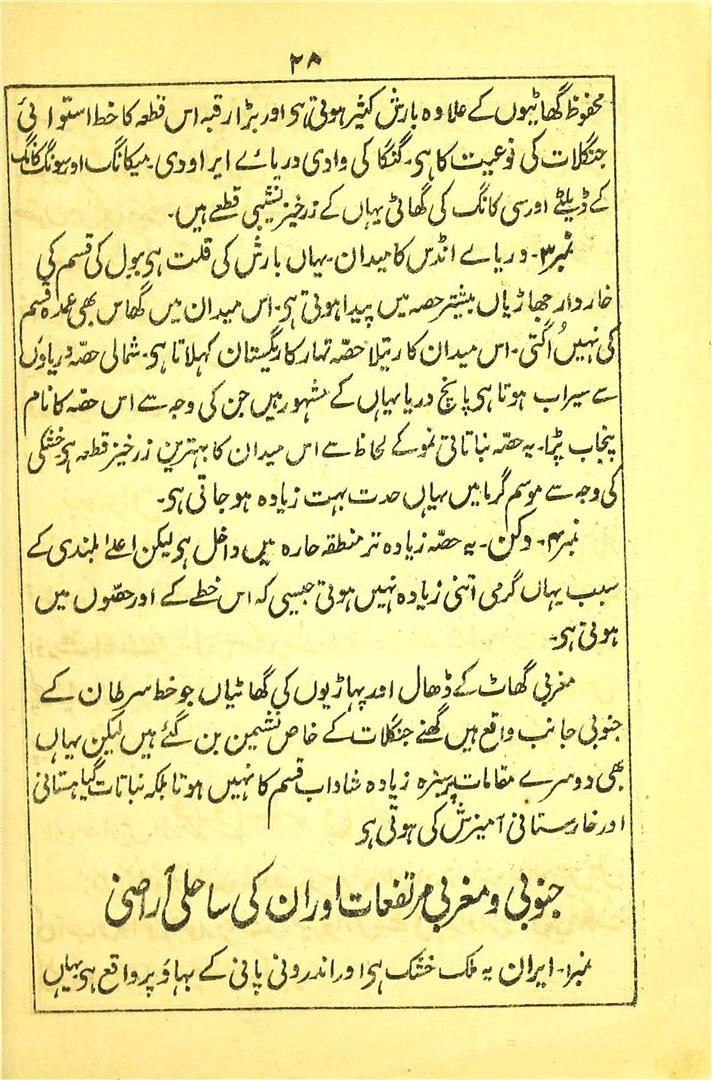 ۲۸
محفوظ گھاٹیوں کے علاوہ بارش کثیر ہوتی ہی اور بڑا رقبہ اس قطعہ کا خط استوائی
جنگلات کی نوعیت کا ہی۔ گنگا کی وادی دریاے ایراودی۔ میکانگ اور سونگ کانگ
کے ڈیلٹے اور سی کانگ کی گھاٹی یہاں کے زرخیز نشیبی قطعے ہیں۔
نمبر۳۔ دریاے انڈس کا میدان۔ یہاں بارش کی قلت ہی ببول کی قسم کی
خاردار جھاڑیاں بیشتر حصہ میں پیدا ہوتی ہی۔ اس میدان میں گھاس بھی عمدہ قسم
کی نہیں اُگتی۔ اس میدان کا ریتلا حصّہ تہار کا ریگستان کہلاتا ہی۔ شمالی حصّہ دریاوں
سے سیراب ہوتا ہی پانچ دریا یہاں کے مشہور ہیں جن کی وجہ سے اس حصّہ کا نام
پنجاب پڑا۔ یہ حصّہ نباتاتی نمو کے لحاظ سے اس میدان کا بہترین زرخیز قطعہ ہی خشکی
کی وجہ سے موسم گرما میں یہاں حدت بہت زیادہ ہو جاتی ہی۔
نمبر۴۔ دکن۔ یہ حصّہ زیادہ تر منطقہ حارہ میں داخل ہی لیکن اعلےٰ بلندی کے
سبب یہاں گرمی اتنی زیادہ نہیں ہوتی جیسی کہ اس خطے کے اور حصّوں میں
ہوتی ہی۔
مغربی گھاٹ کے ڈھال اور پہاڑیوں کی گھاٹیاں جو خط سرطان کے
جنوبی جانب واقع ہیں گھنے جنگلات کے خاص نشیمن بن گئے ہیں لیکن یہاں
بھی دوسرے مقامات پر سبزہ زیادہ شاداب قسم کا نہیں ہوتا بلکہ نباتات گیاہستانی
اور خارستانی آمیزش کی ہوتی ہی
جنوبی و مغربی مرتفعات اور ان کی ساحلی اراضی
نمبر۱۔ ایران یہ ملک خشک ہی اور اندرونی پانی کے بہاؤ پر واقع ہی یہاں